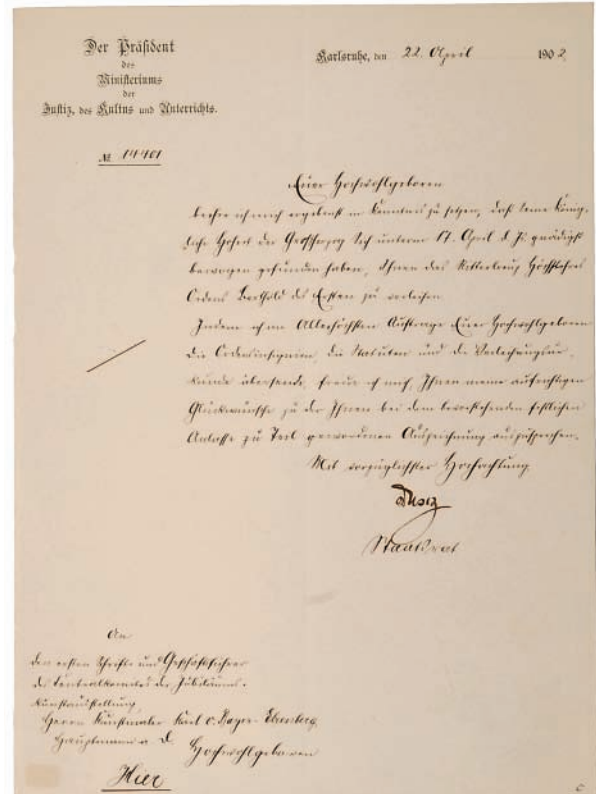 Der Präsident
des
Ministeriums
der
Justiz, des Kultus und Unterrichts.
Karlsruhe, den 22. April 1902
№ 14401
Euer Hochwohlgeboren
beehre ich mich ergebenst in Kenntnis zu setzen, daß Seine König-
liche Hoheit der Großherzog Sich unterm 17. April d. Js. gnädigst
bewogen gefunden haben, Ihnen das Ritterkreuz Höchstihres
Ordens Berthold des Ersten zu verleihen.
Indem ich im Allerhöchsten Auftrage Euer Hochwohlgeboren
die Ordensinsignien, die Statuten und die Verleihungsur-
kunde übersende, freue ich mich, Ihnen meine aufrichtigen
Glückwünsche zu der Ihnen bei dem bevorstehenden festlichen
Anlasse zu Teil gewordenen Auszeichnung auszusprechen.
Mit vorzüglichster Hochachtung
Staatsrat
An
den ersten Schrift- und Geschäftsführer
des Centralkomites der Jubiläums-
kunstausstellung
Herrn Kunstmaler Karl v. Bayer-Ehrenberg
Hauptmann a. D.
Hochwohlgeboren
Hier